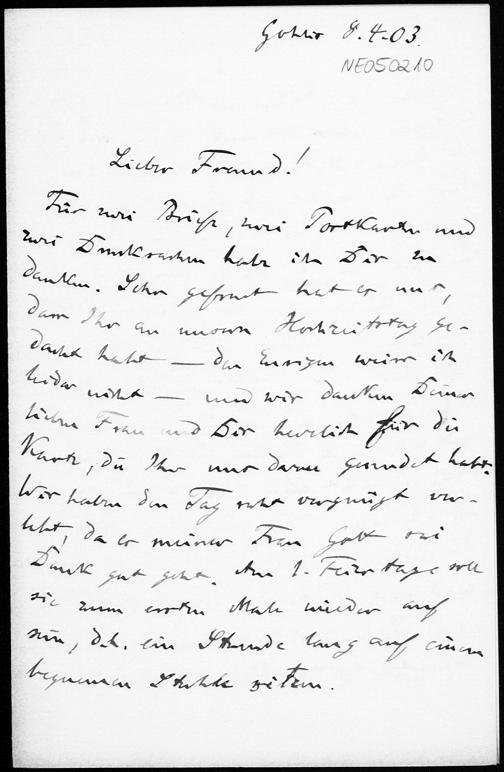 Gohlis 8.4.03.
NE050210
Lieber Freund!
Für zwei Briefe, zwei Postkarten und
zwei Drucksachen habe ich Dir zu
danken. Sehr gefreut hat es uns,
dass Ihr an unsern Hochzeitstag ge-
dacht habt — den Eurigen weiss ich
leider nicht — und wir danken Deiner
lieben Frau und Dir herzlich für die
Karte, die Ihr uns dazu gesendet habt.
Wir haben den Tag sehr vergnügt ver-
lebt, da es meiner Frau Gott sei
Dank gut geht. Am 1. Feiertage soll
sie zum ersten Male wieder auf
sein, d.h. ein Stunde lang auf einem
bequemen Stuhle sitzen.